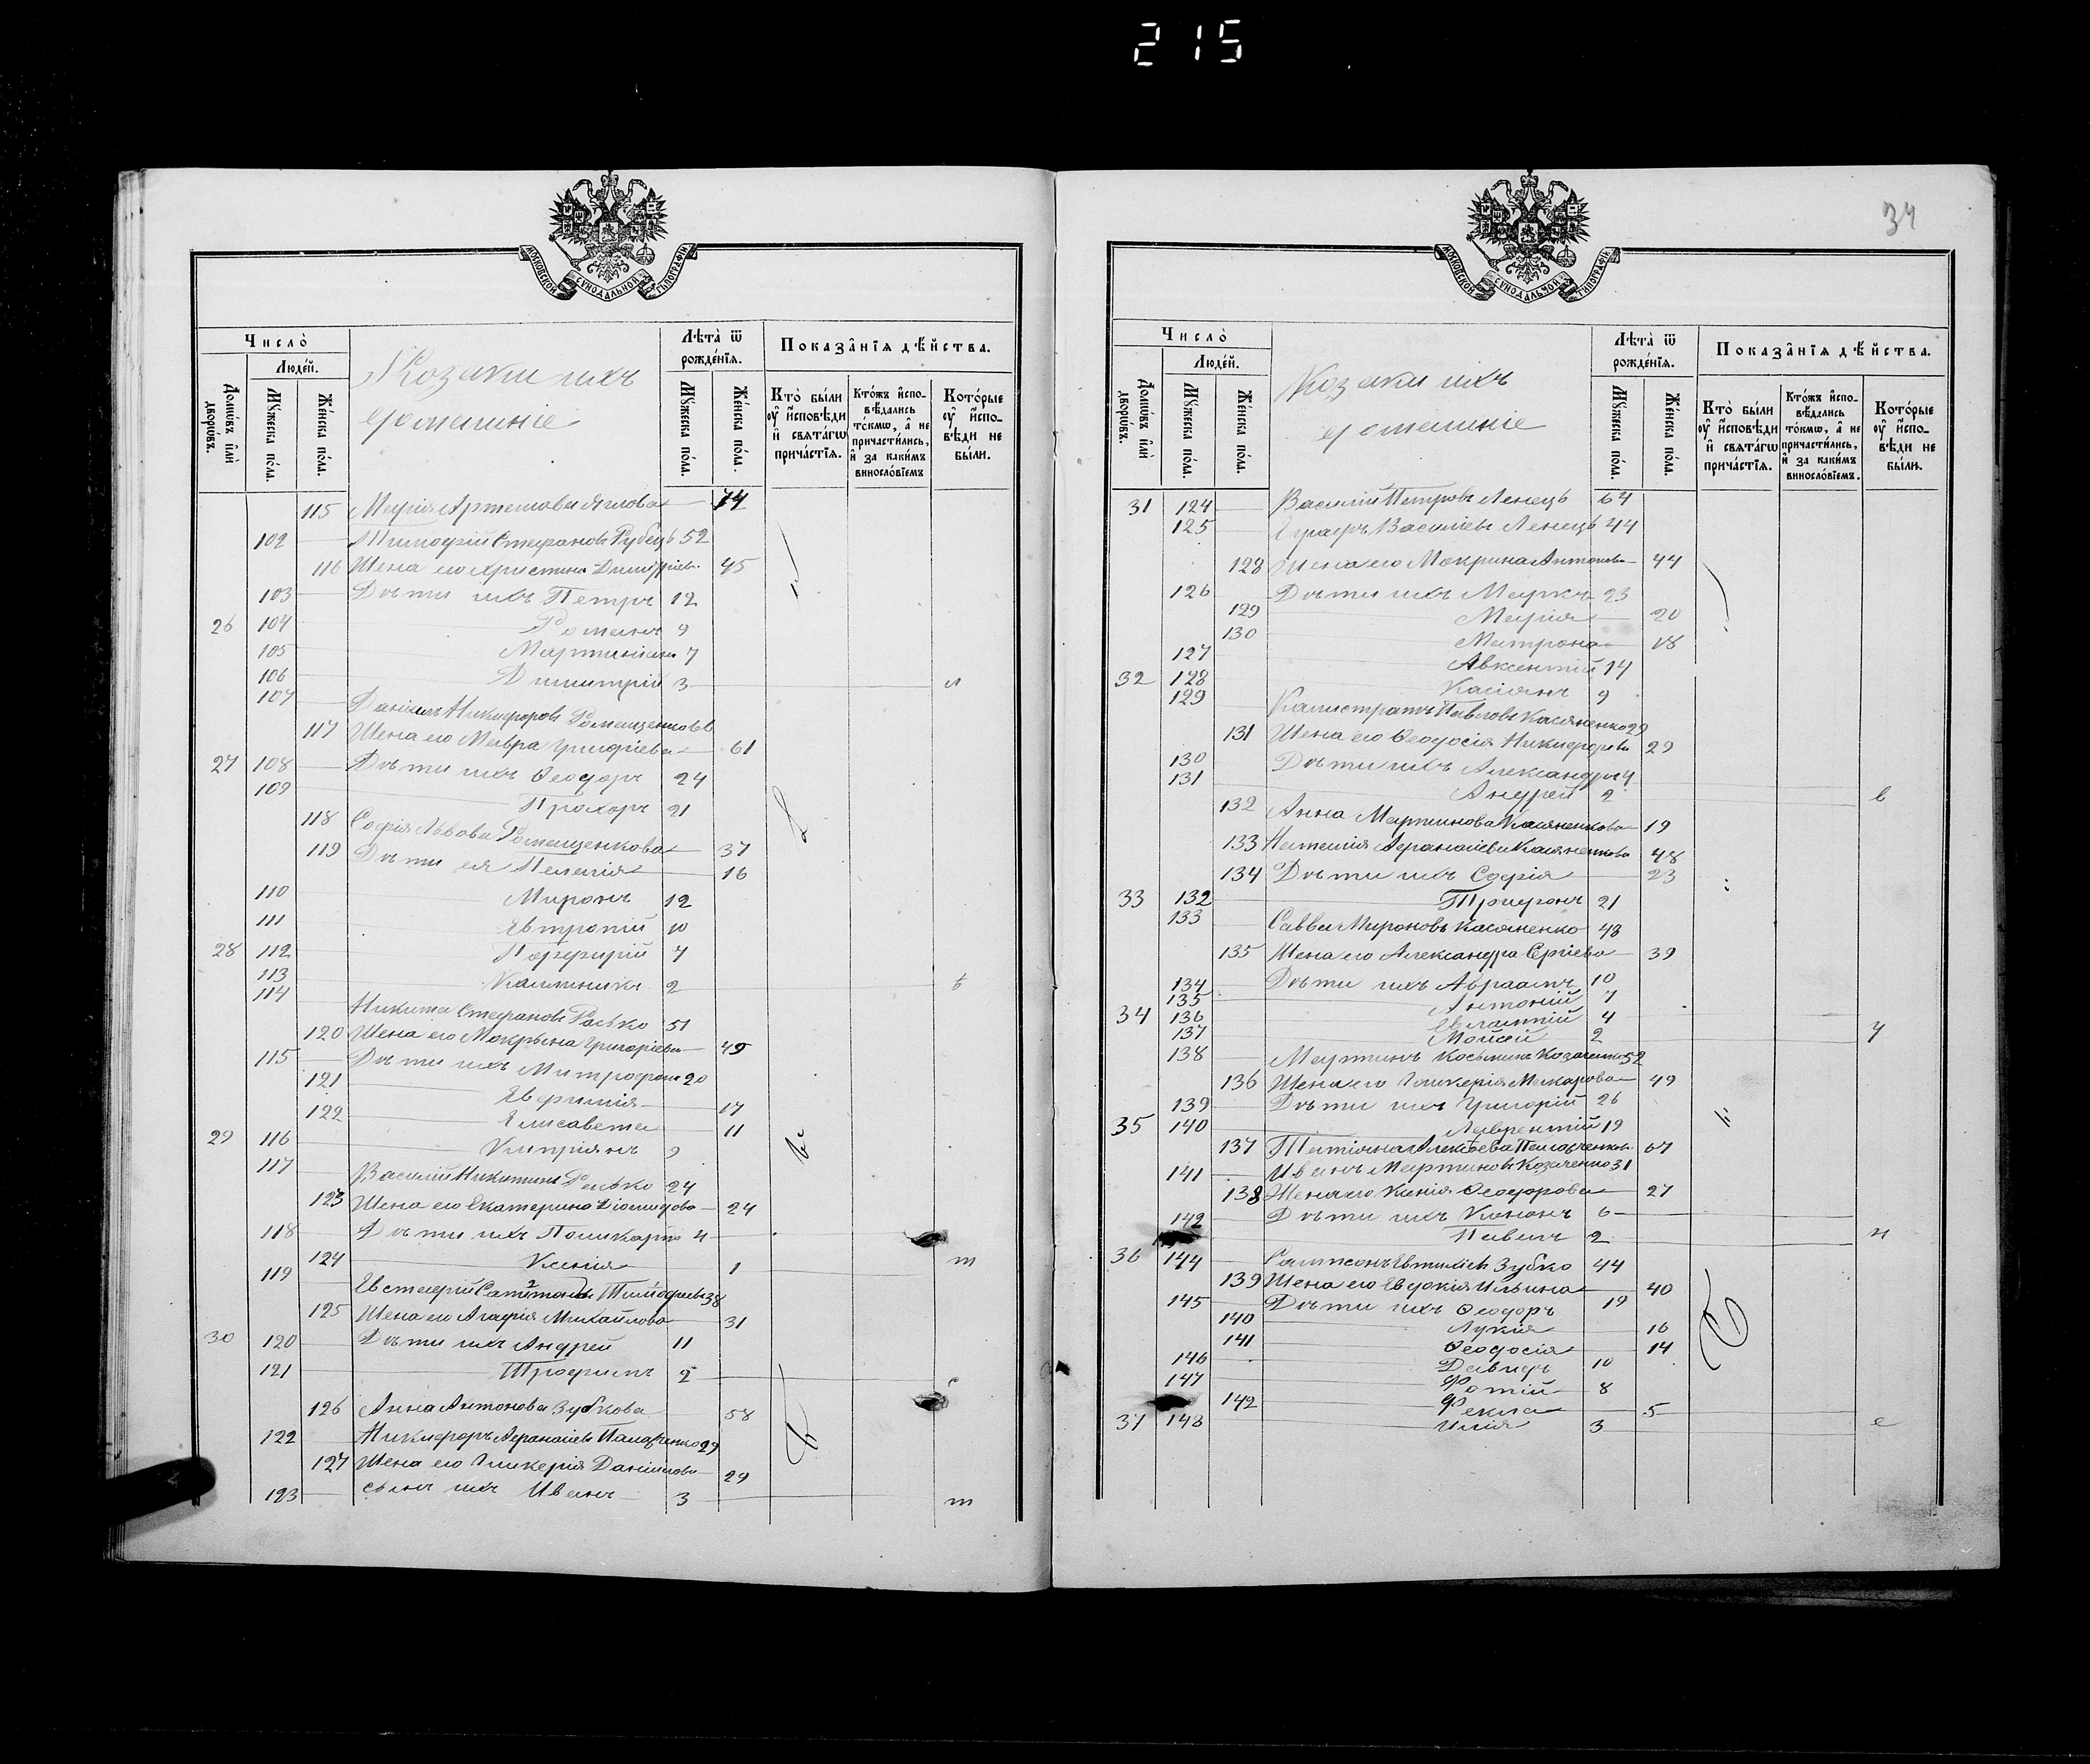 215
МОСКОВСКОЙ СѴНОДАЛЬНОЙ ТѴПОГРАФІИ
Число̀
Люде́й.
Домѡ́въ и҆лѝ дворѡ́въ.
Мꙋ́жеска по́ла.
Же́нска по́ла.
Козаки ихъ
домашніе
Лѣ́та ѿ рожде́нїѧ.
Мꙋ́жеска по́ла.
Же́нска по́ла.
Показа̑нїѧ дѣ́йства.
Кто̀ бы́ли ᲂу҆ и҆сповѣ́ди и҆ свѧта́гѡ прича́стїѧ.
Кто́жъ и҆спо-вѣ́дались то́кмѡ, а҆ не причасти́лись, и҆ за каки́мъ виносло́вїемъ
Кото́рые ᲂу҆ и҆спо-вѣ́ди не бы́ли.
115 Марія Артемова Яглова 74
102 Тимофій Стефановъ Рубецъ 52
116 Жена его Христина Димитріев. 45
103 Дѣти ихъ Петръ 12
26 104 Романъ 9
105 Мартиніанъ 7
106 Димитрій 3
107 Даніилъ Никифоровъ Ромащенко
117 Жена его Мавра Григоріева 61
27 108 Дѣти ихъ Ѳеодоръ 24
109 Прохоръ 21
118 Софія Львова Ромащенкова 37
119 Дѣти ея Пелагія 16
110 Миронъ 12
111 Евтропій 10
28 112 Порфирій 7
113 Калиникъ 2
114 Никита Стефановъ Ралько 51
120 Жена его Мокрына Григоріева 49
115 Дѣти ихъ Митрофанъ 20
121 Евфимія 17
122 Елисавета 11
29 116 Кипріянъ 9
117 Василій Никитинъ Ралько 24
123 Жена его Екатерина Діомидова 24
118 Дѣти ихъ Поликарпъ 4
124 Ксенія 1 т
119 Евстафій 38
125 Жена его Агафія Михайлова 31
30 120 Дѣти ихъ Андрей 11
121 Трофимъ 2 с
126 Анна Антонова Зубкова 58
122 Никифоръ Афанасіевъ 29
127 Жена его Гликерія Даніилова 29
123 сынъ ихъ Иванъ 3 т
34
МОСКОВСКОЙ СѴНОДАЛЬНОЙ ТѴПОГРАФІИ
Число̀
Люде́й.
Домѡ́въ и҆лѝ дворѡ́въ.
Мꙋ́жеска по́ла.
Же́нска по́ла.
Козаки ихъ
домашніе
Лѣ́та ѿ рожде́нїѧ.
Мꙋ́жеска по́ла.
Же́нска по́ла.
Показа̑нїѧ дѣ́йства.
Кто̀ бы́ли ᲂу҆ и҆сповѣ́ди и҆ свѧта́гѡ прича́стїѧ.
Кто́жъ и҆спо-вѣ́дались то́кмѡ, а҆ не причасти́лись, и҆ за каки́мъ винослоʹвїемъ.
Кото́рые ᲂу҆ и҆спо-вѣ́ди не бы́ли.
31 124 Василій Петровъ Ленецъ 64
125 Василіевъ Ленецъ 44
128 Жена его Мокрина Антонова 44
126 Дѣти ихъ Маркъ 23
129 Марія 20
130 Матрона 18
127 Авксентій 14
32 128 Касіянъ 9
129 Калистратъ Павловъ Касяненко 29
131 Жена его Ѳеодосія Никифорова 29
130 Дѣти ихъ Александръ 4
131 Андрей 2 в
132 Анна Мартинова Касяненкова 19
133 Наталія Афанасіева Касяненкова 48
134 Дѣти ихъ Софія 23
33 132 Трифонъ 21
133 Савва Мироновъ Касяненко 48
135 Жена его Александра Сергіева 39
134 Дѣти ихъ Авраамъ 10
135 Антоній 7
34 136 Евлампій 4
137 Мойсей 2 у
138 Мартинъ Косьминъ Козаченко 52
136 Жена его Гликерія Макарова 49
139 Дѣти ихъ Григорій 26
35 140 Лаврентій 19
137 Татіанна Алексѣева 67
141 Иванъ Мартиновъ Козаченко 31
138 Жена его Ксенія Ѳеодорова 27
142 Дѣти ихъ Кононъ 6
Павелъ 2 и
36 144 Сампсонъ Евтихіевъ Зубко 44
139 Жена его Евдокія Ильина 40
145 Дѣти ихъ Ѳеодоръ 19
140 Лукія 16
141 Ѳеодосія 14
146 Давидъ 10
147 Фотій 8
142 Фекла 5
37 148 Илія 3 е